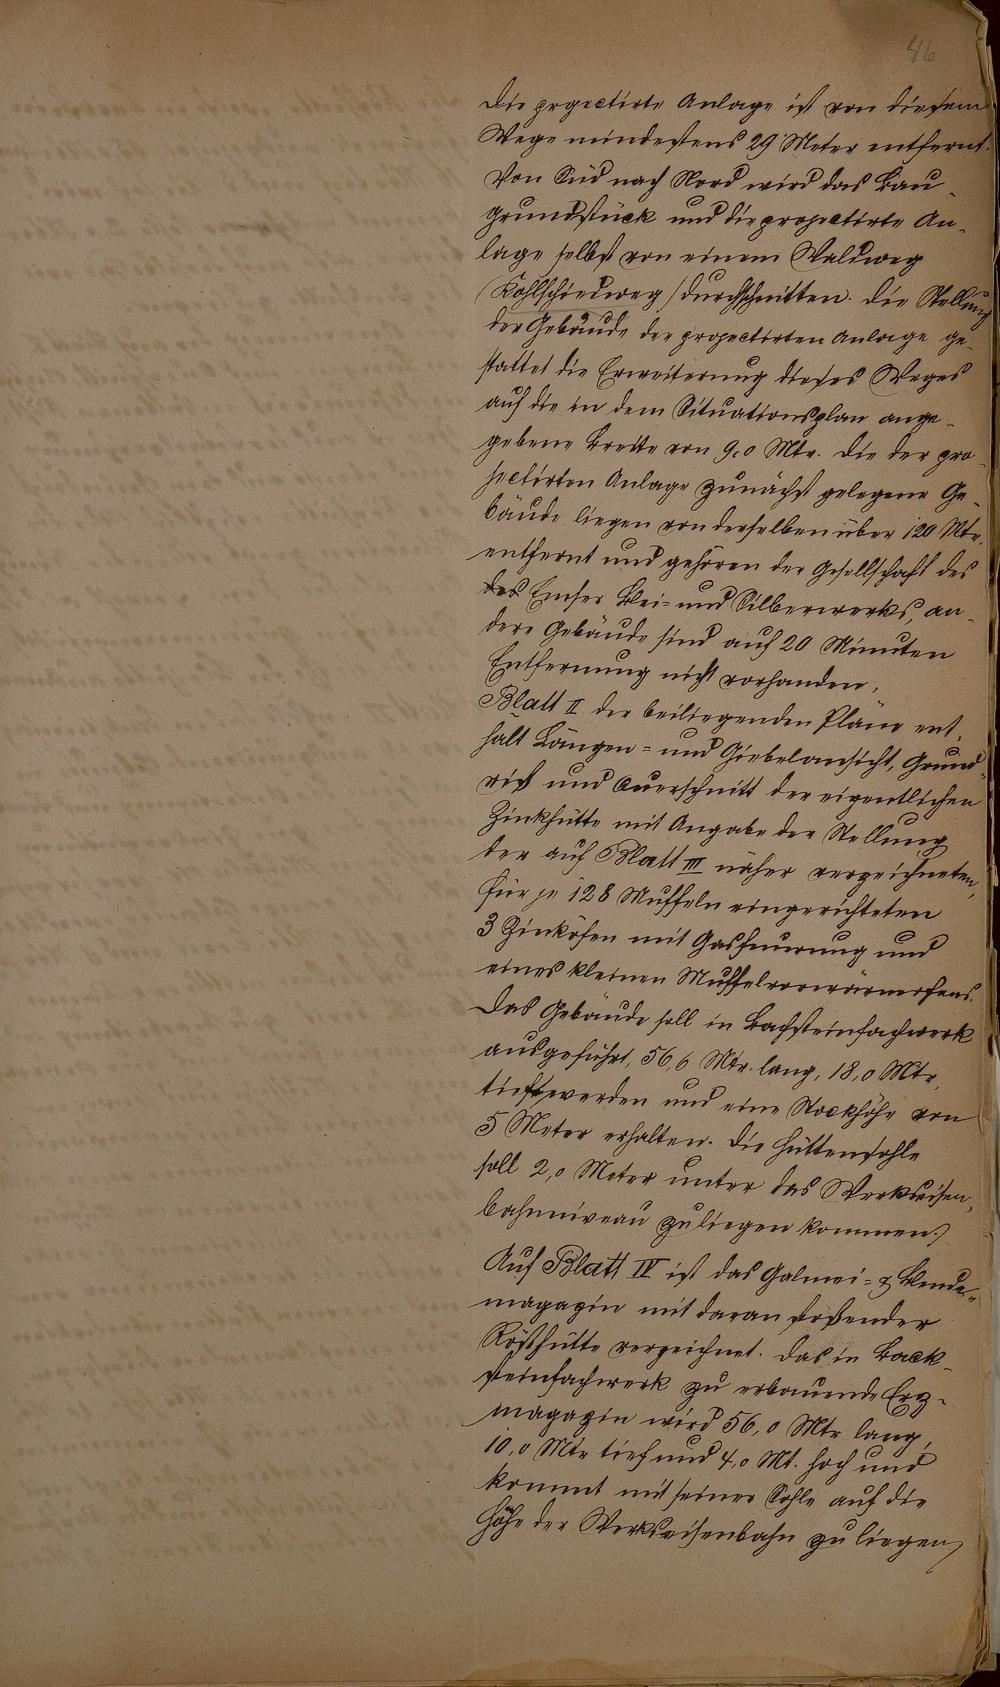 86
Die projectirte Anlage ist von diesem
Wege mindestens 29 Meter entfernt.
Von Süd nach Nord wird das Bau-
grundstück und die projectirte An-
lage selbst von einem Waldweg
(Kohlschiedweg) durchschnitten. Die Stellung
der Gebäude der projectirten Anlage ge-
stattet die Erweiterung dieses Weges
auf die in dem Situationsplan ange-
gebene Breite von 9,0 Mtr. Die der pro-
jectirten Anlage zunächst gelegene Ge-
bäude liegen von derselben über 120 Mtr.
entfernt und gehören der Gesellschaft des
des Emser Blei- und Silberwerks, an-
dere Gebäude sind auf 20 Minuten
Entfernung nicht vorhanden.
Blatt II der beiliegenden Pläne ent-
hält Längen- und Giebelansicht, Grund-
riß und Querschnitt der eigentlichen
Zinkhütte mit Angabe der Stellung
der auf Blatt III näher verzeichneten,
für je 128 Muffeln eingerichteten
3 Zinköfen mit Gasfeuerung und
eines kleinen Muffelvorwärmofens.
Das Gebäude soll in Backsteinfachwerk
ausgeführt, 56,6 Mtr. lang, 18,0 Mtr.
tief werden und eine Stockhöhe von
5 Meter erhalten. Die Hüttensohle
soll 2,0 Meter unter das Werkseisen-
bahnniveau zu liegen kommen.
Auf Blatt IV ist das Galmei- & Blende-
magazin mit daran stoßender
Rösthütte verzeichnet. Das in Back-
steinfachwerk zu erbauende Erz-
magazin wird 56,0 Mtr lang,
10,0 Mtr tief und 4,0 Mt. hoch und
kommt mit seiner Sohle auf die
Höhe der Werkseisenbahn zu liegen,